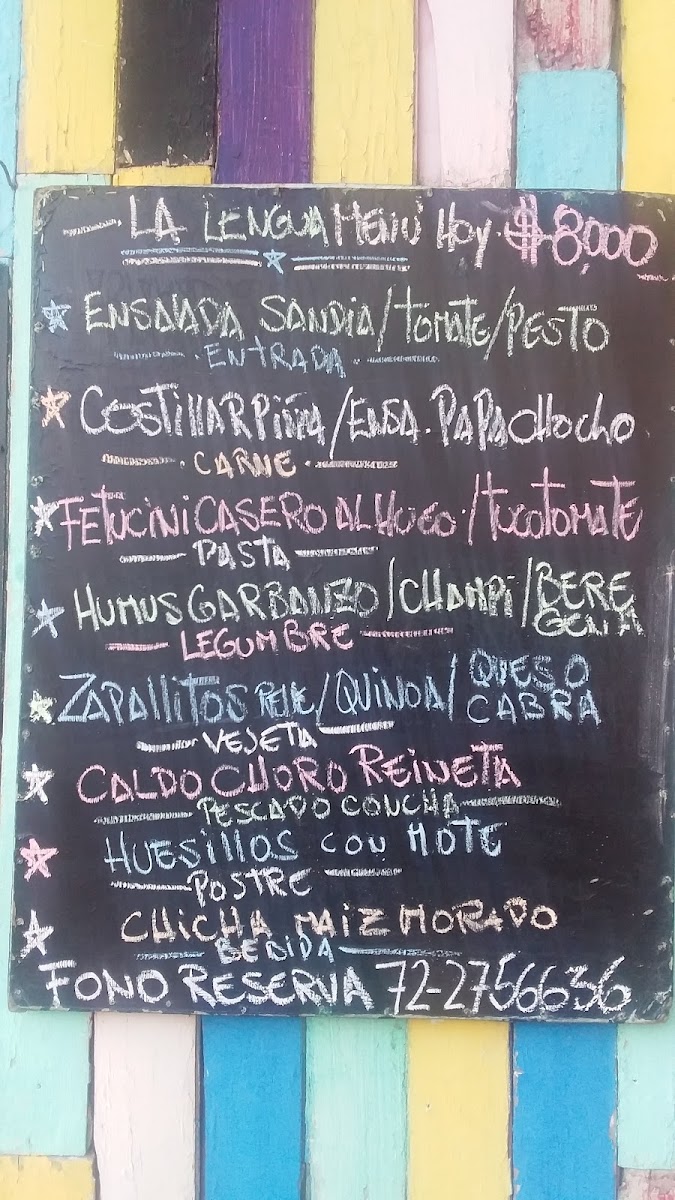 LA LENGUA MENÚ HOY $8,000
ENSALADA SANDIA/TOMATE/PESTO
ENTRADA
COSTILLAR PIÑA/ENSA. PAPACHOCHO
CARNE
FETUCINI CASERO AL HUGO./TUCOTOMATE
PASTA
HUMUS GARBANZO/CHAMPI/BERE
GENA
LEGUMBRE
ZAPALLITOS RELLE/QUINOA/QUESO
CABRA
VEJETA
CALDO CHORO REINETA
PESCADO CONCHA
HUESILLOS CON MOTE
POSTRE
CHICHA MAIZ MORADO
BEBIDA
FONO RESERVA 72-2756636